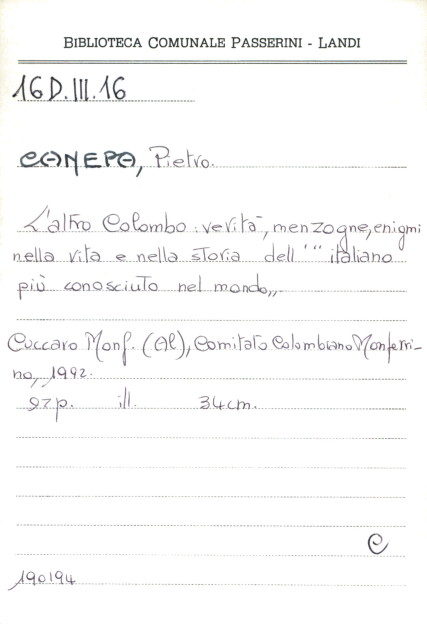 BIBLIOTECA COMUNALE PASSERINI - LANDI
16 D.III.16
CANEPA, Pietro.
L'altro Colombo : verità, menzogne, enigmi
nella vita e nella storia dell'"italiano
più conosciuto nel mondo".
Cuccaro Monf. (Al), Comitato Colombiano Monferri-
no, 1992.
92 p. ill. 34 cm.
C
190194